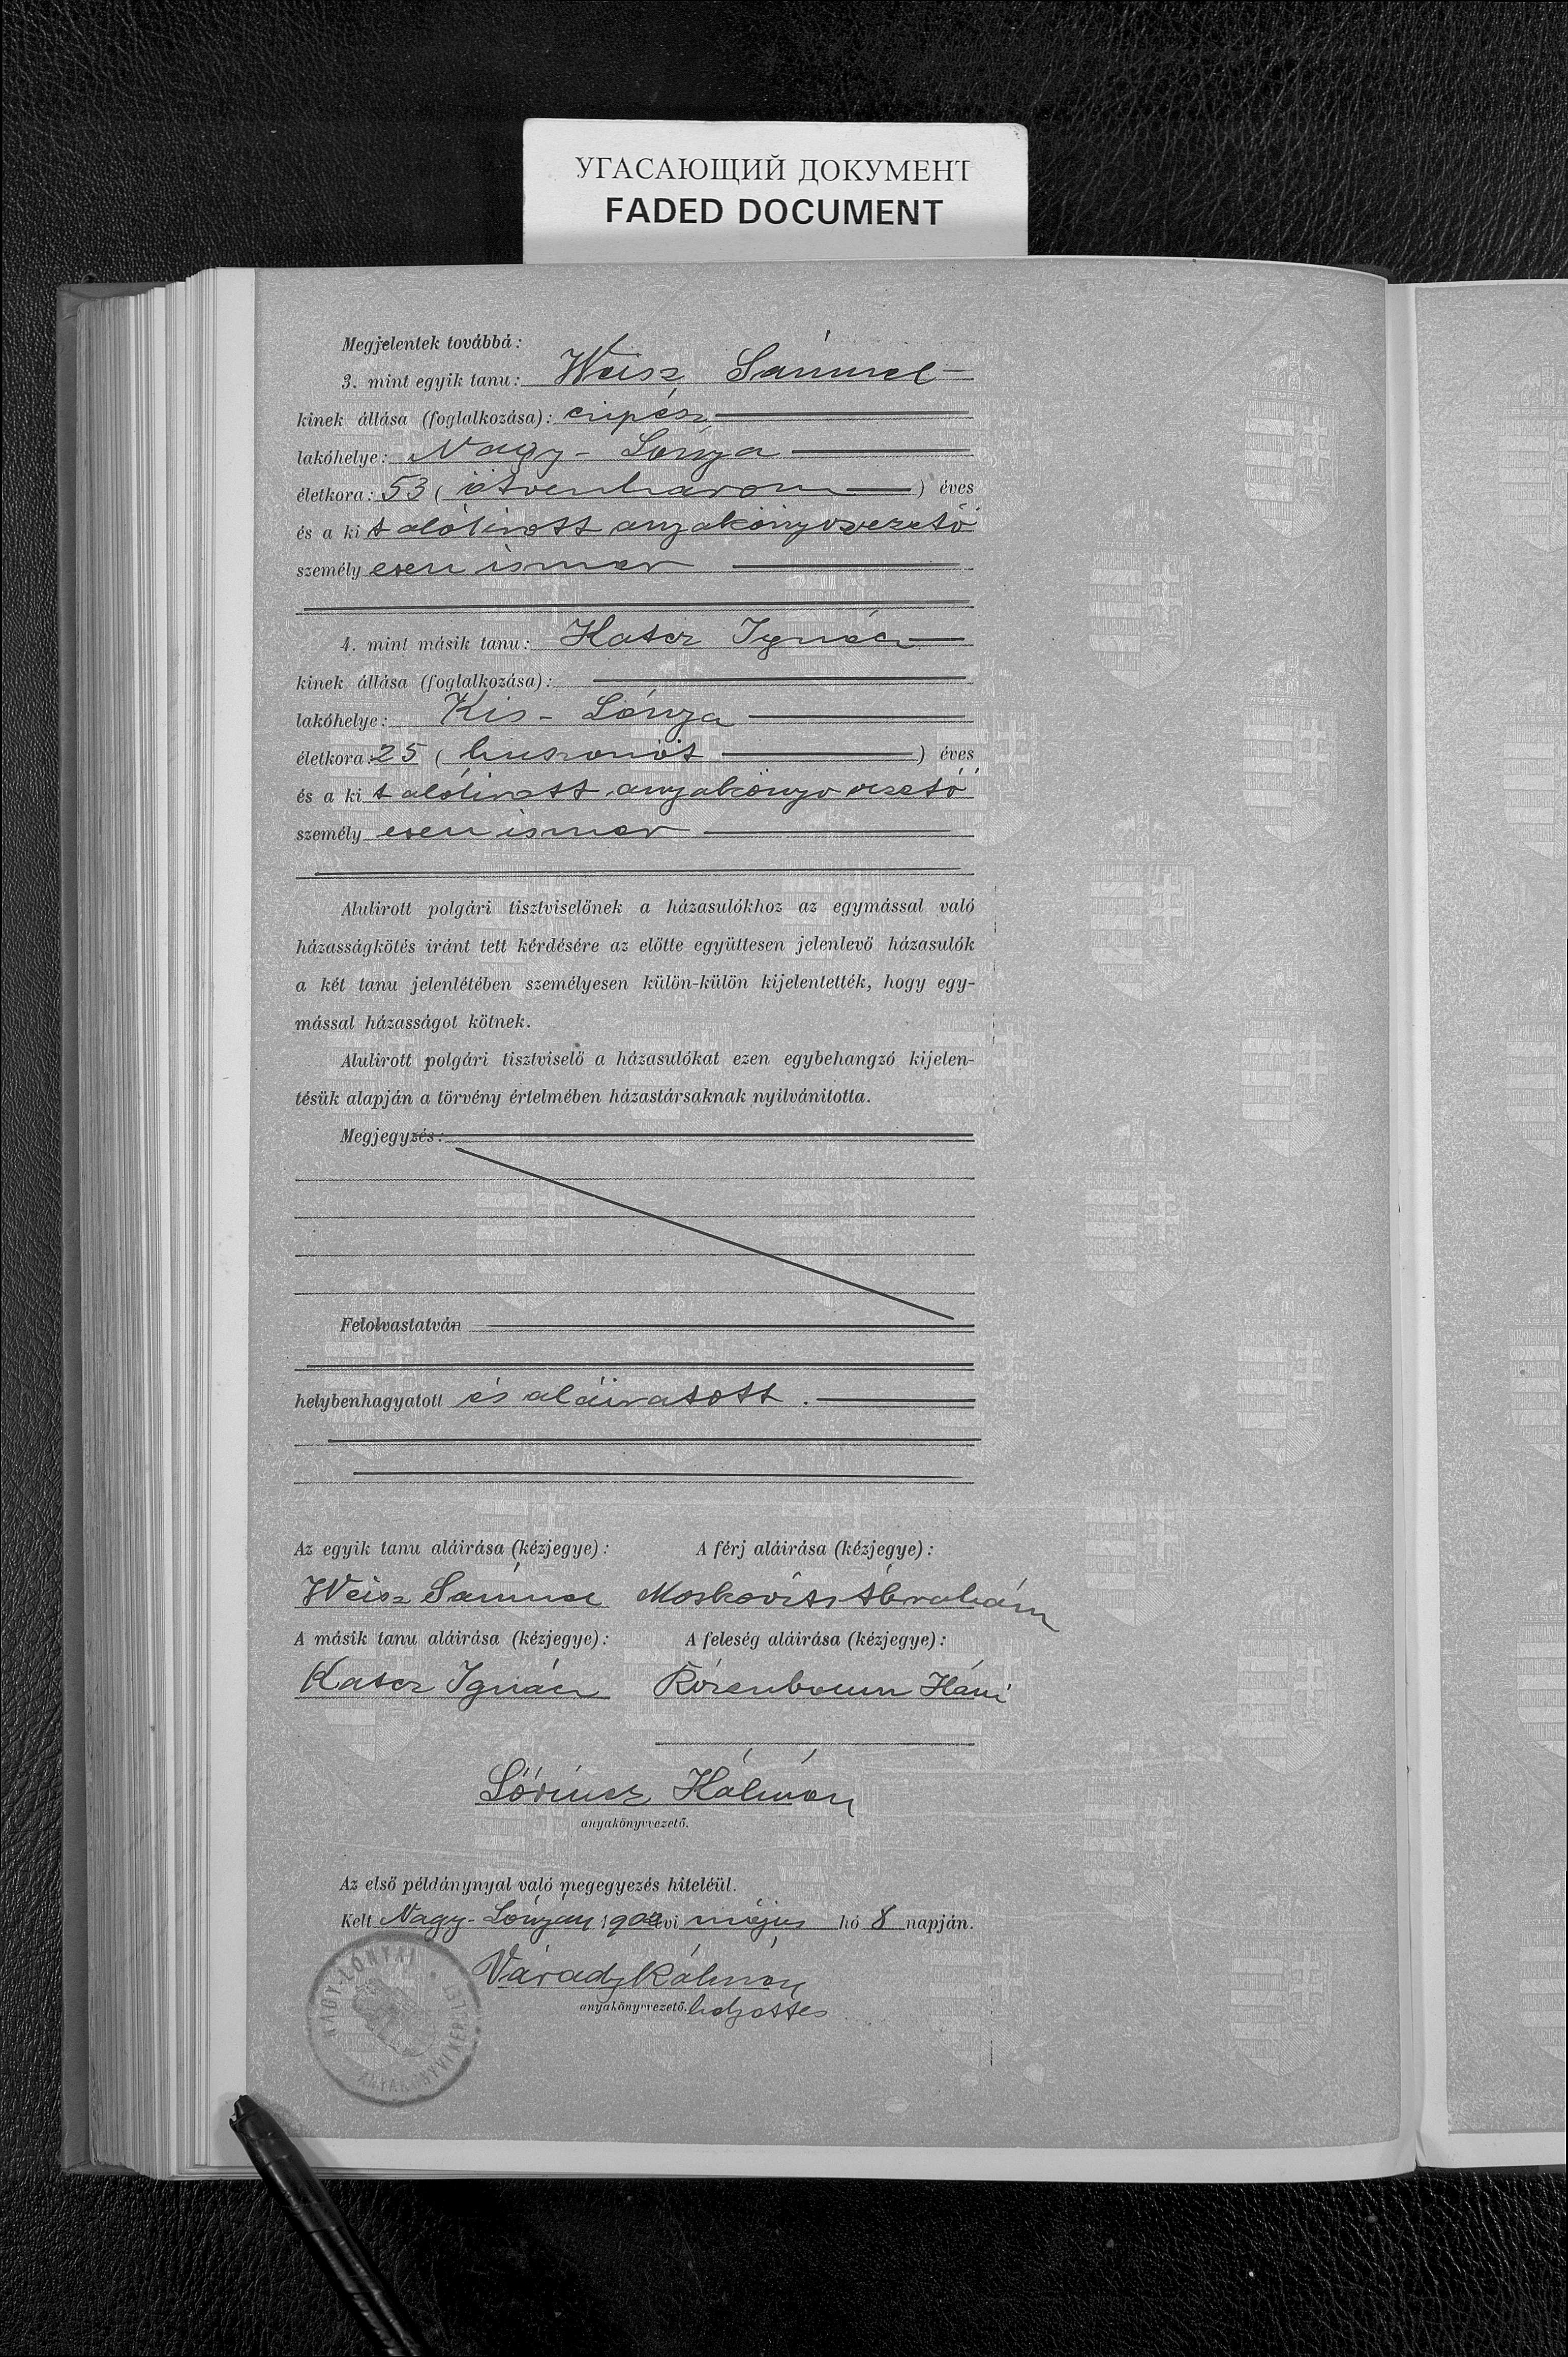 УГАСАЮЩИЙ ДОКУМЕНТ
FADED DOCUMENT
Megjelentek továbbá:
3. mint egyik tanu: Weisz Sámuel
kinek állása (foglalkozása): czipész
lakóhelye: Nagy-Lónya
életkora: 53 (ötvenharom) éves
és a ki t alólirott anyakönyvvezető
személy esen ismer
4. mint másik tanu: Katcz Ignácz
kinek állása (foglalkozása):
lakóhelye: Kis-Lónya
életkora: 25 (huszonöt) éves
és a ki t alólirott anyakönyvvezető
személy esen ismer
Alulirott polgári tisztviselőnek a házasulókhoz az egymással való
házasságkötés iránt tett kérdésére az előtte együttesen jelenlevő házasulók
a két tanu jelenlétében személyesen külön-külön kijelentették, hogy egy-
mással házasságot kötnek.
Alulirott polgári tisztviselő a házasulókat ezen egybehangzó kijelen-
tésük alapján a törvény értelmében házastársaknak nyilvánitotta.
Megjegyzés:
Felolvastatván
helybenhagyatott és aláiratott.
Az egyik tanu aláirása (kézjegye): A férj aláirása (kézjegye):
Weisz Sámuel Moskovits Ábrahám
A másik tanu aláirása (kézjegye): A feleség aláirása (kézjegye):
Katcz Ignácz Rózenbaum Háni
Lőrincz Kálmán
anyakönyvvezető.
Az első példánynyal való megegyezés hiteléül.
Kelt Nagy-Lónyán 1902 évi május hó 8 napján.
Várady Kálmán
anyakönyvvezető. helyettes
NAGY-LÓNYAI
ANYAKÖNYVI KERÜLET